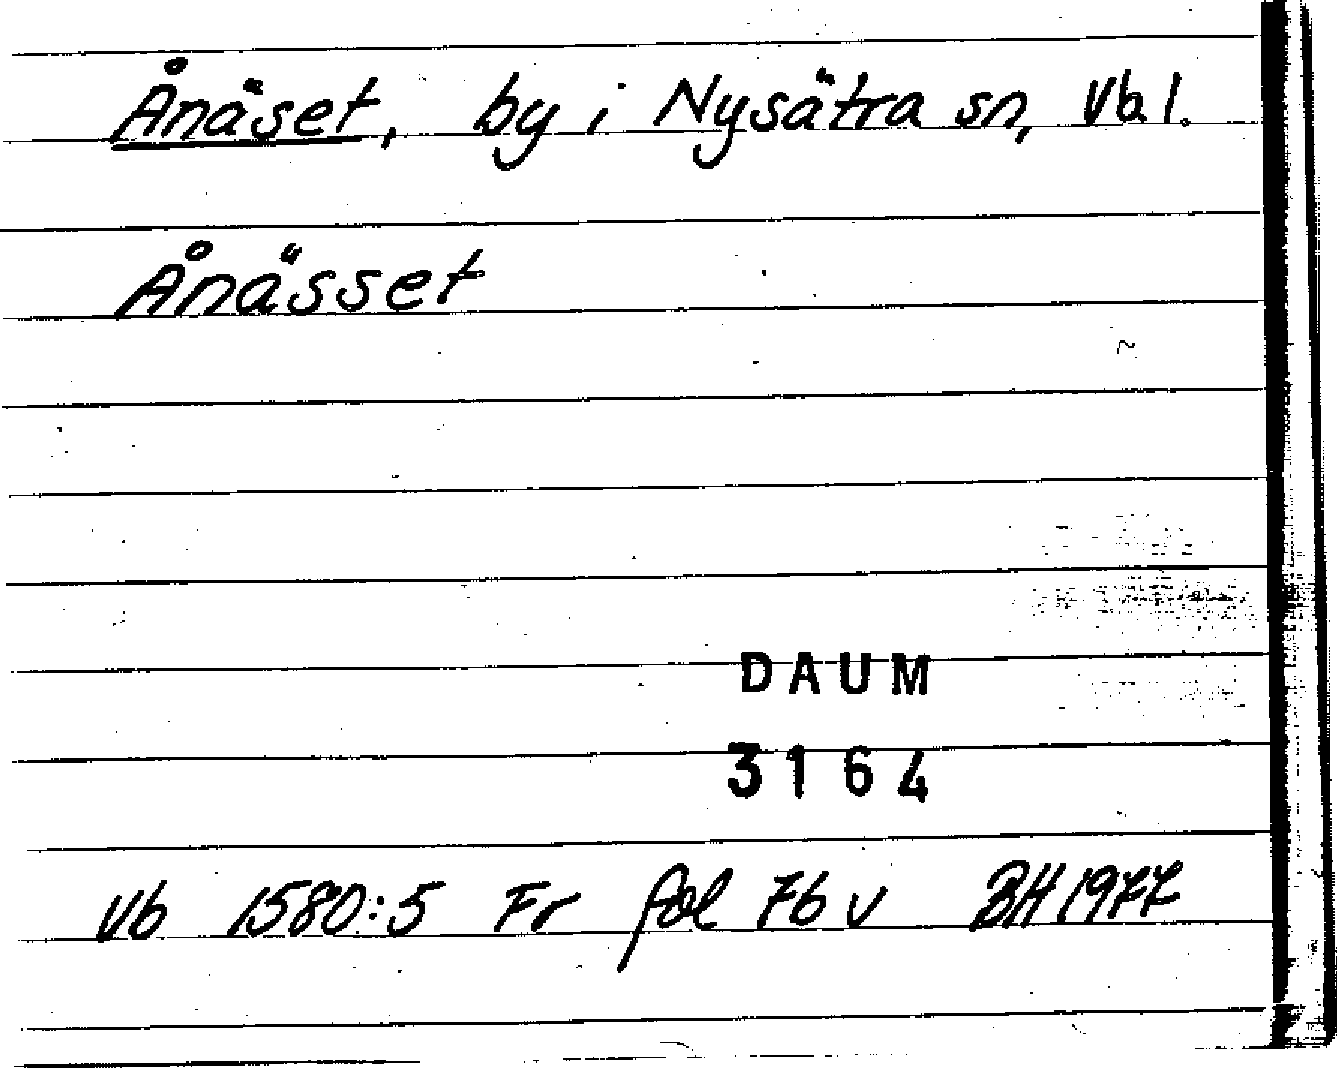 Ånäset, by i Nysätra sn, Vb l.
Ånässet
DAUM
3164
Vb 1580:5 Fr fol 76 v BH 1977